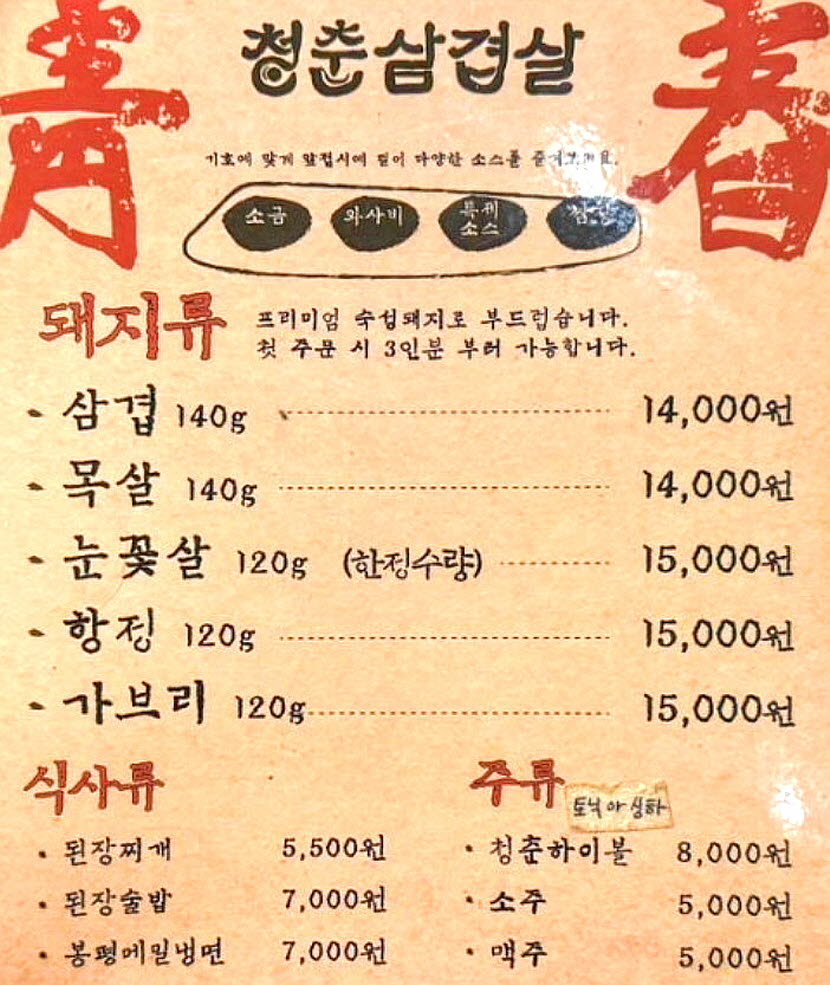 靑 春
청춘삼겹살
기호에 맞게 앞접시에 덜어 다양한 소스를 즐겨보세요.
소금 와사비 특제 소스
돼지류
프리미엄 숙성돼지로 부드럽습니다.
첫 주문 시 3인분 부터 가능합니다.
- 삼겹 140g 14,000원
- 목살 140g 14,000원
- 눈꽃살 120g (한정수량) 15,000원
- 항정 120g 15,000원
- 가브리 120g 15,000원
식사류
· 된장찌개 5,500원
· 된장술밥 7,000원
· 봉평메밀냉면 7,000원
주류
토닉 아 심하
· 청춘하이볼 8,000원
· 소주 5,000원
· 맥주 5,000원